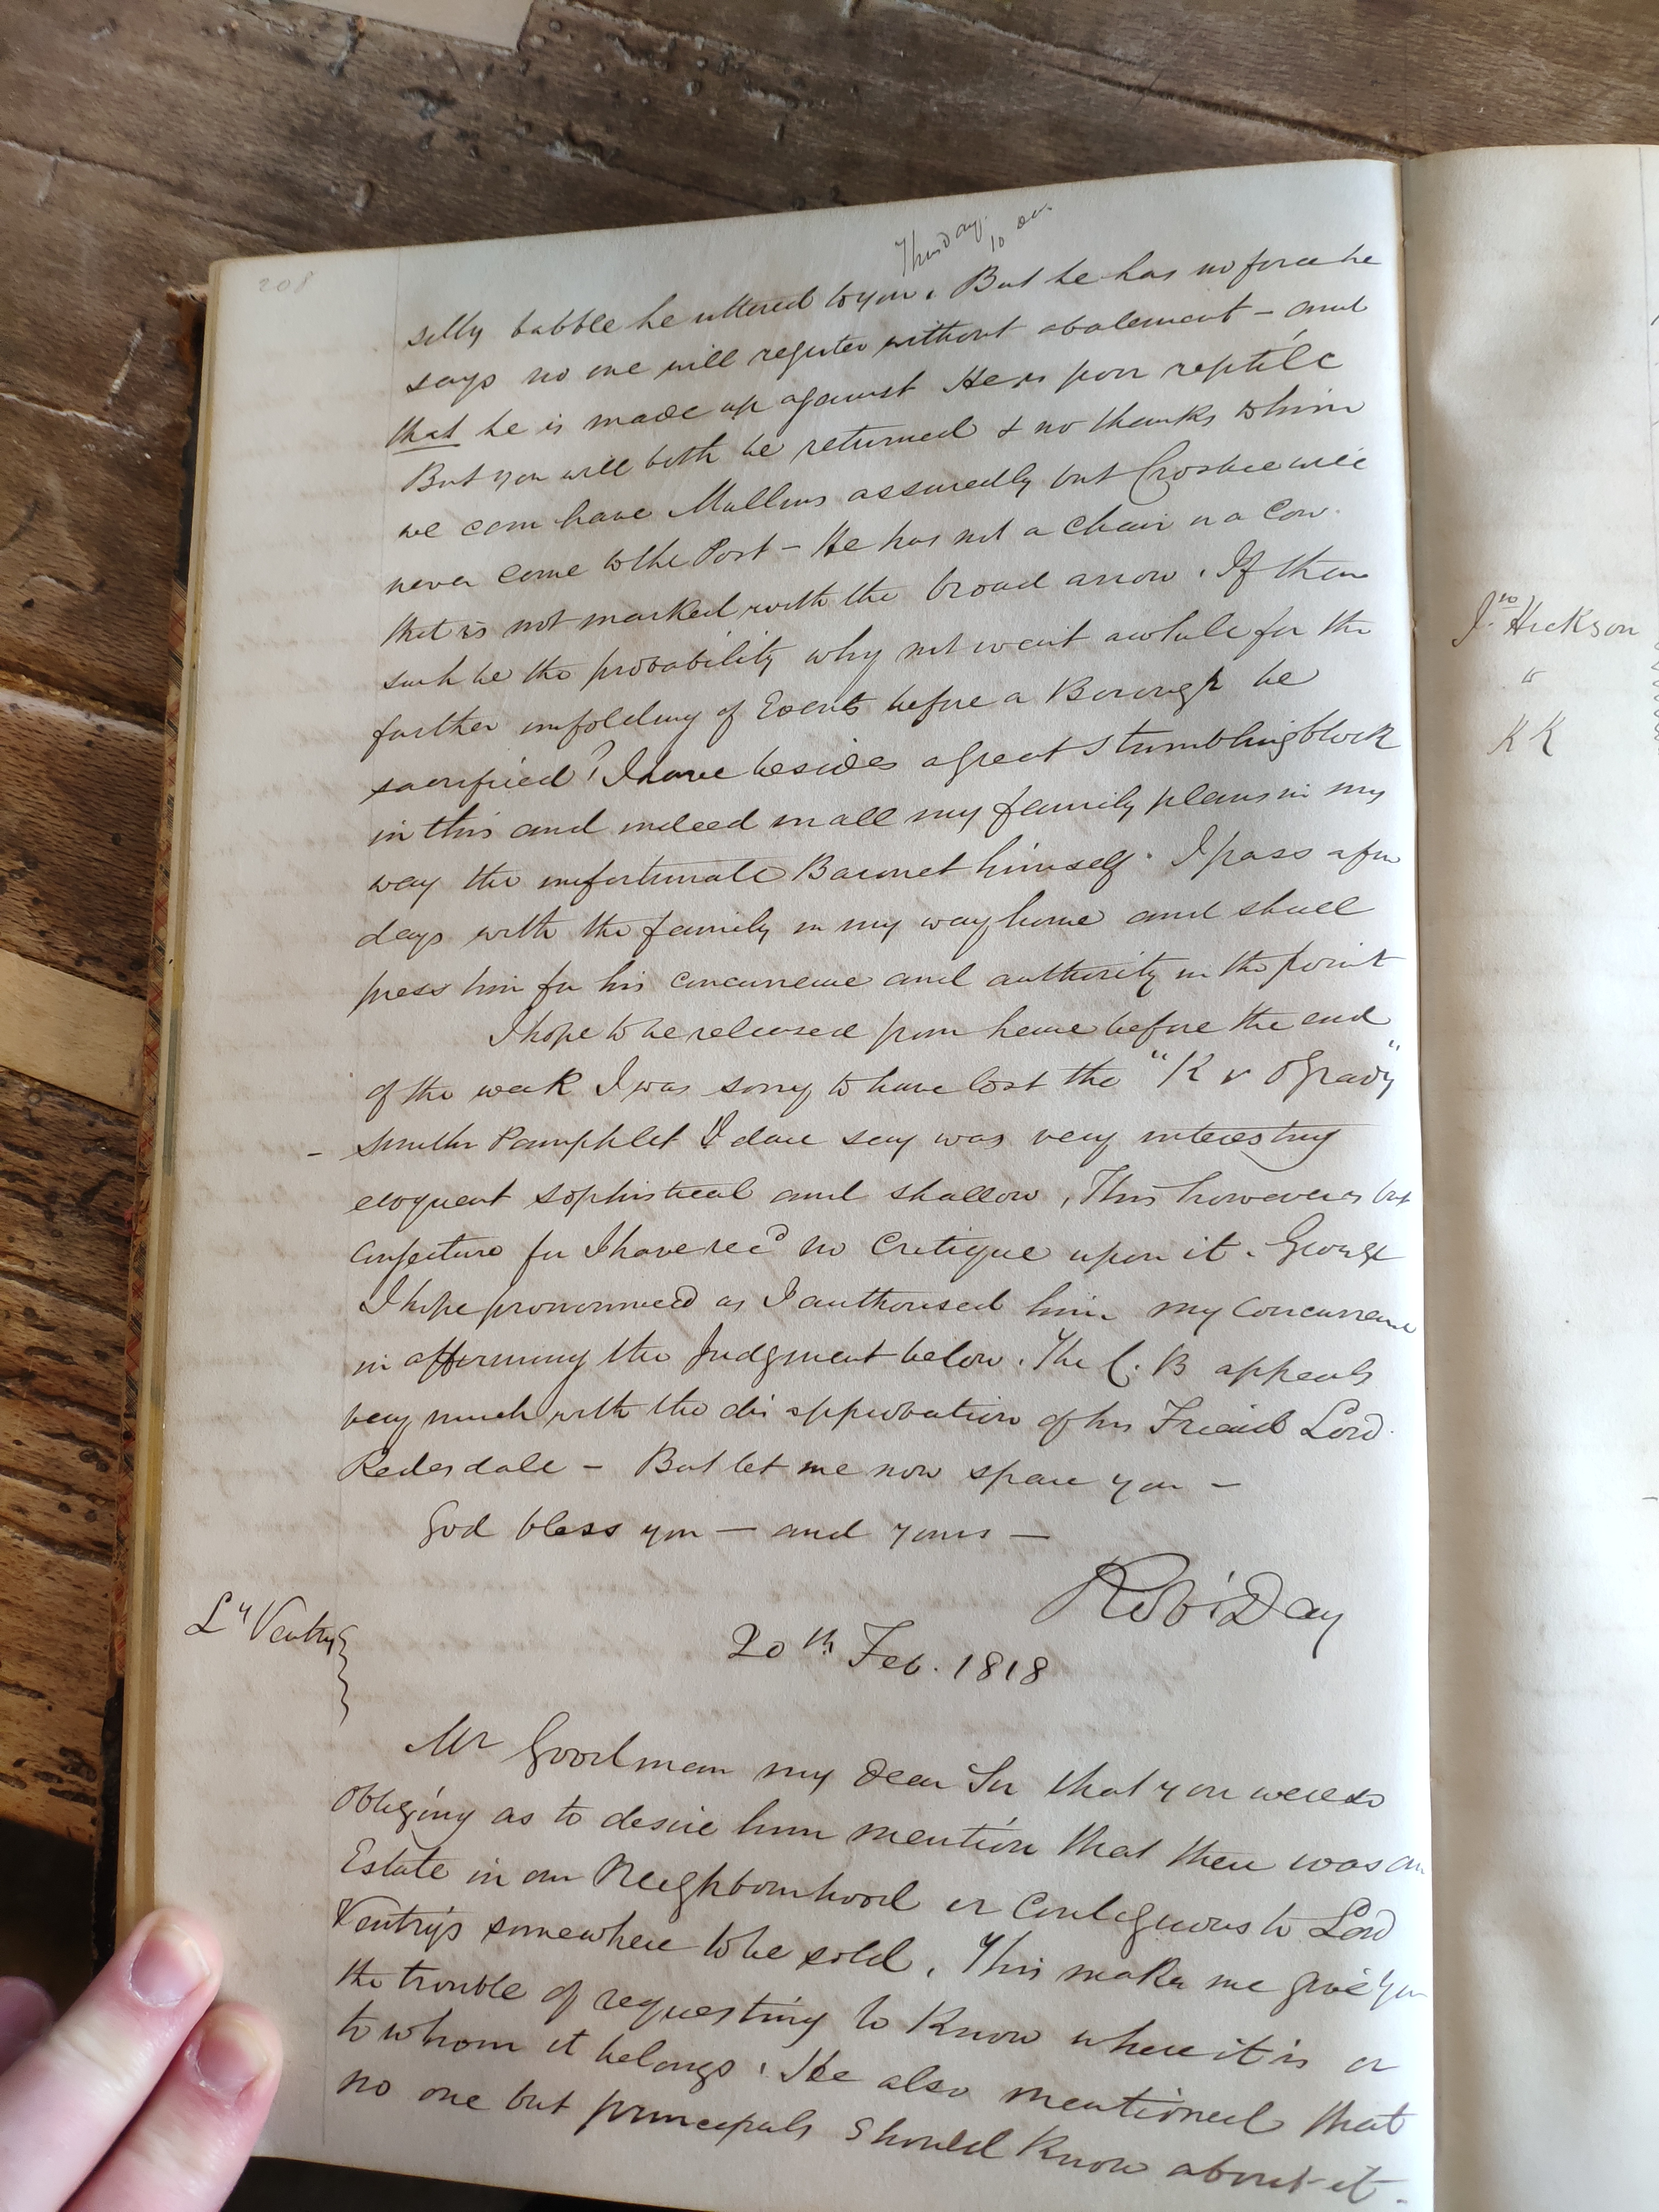 208
Thursday
10
silly babble he uttered to you. But he has no force he
says no one will register without abatement – and
that he is made up against He is poor reptile
But you will both be returned & no thanks to him
we can have Mullins assuredly but Crosbie will
never come to the Post – He has not a Chair or a Cow
that is not marked with the broad arrow. If then
such be the probability why not wait awhile for the
further unfolding of Events before a Borough be
sacrificed? I have besides a great Stumblingblock
in this and indeed in all my family plans in my
way the unfortunate Baronet himself. I pass a few
days with the family in my way home and shall
press him for his concurrence and authority in the point
I hope to be released from hence before the end
of the week I was sorry to have lost the "K v OGrady"
– Smith Pamphlet I dare say was very interesting
eloquent sophistical and shallow, This however is but
Conjecture for I have recd no Critique upon it. George
I hope pronounced as I authorised him my Concurrence
in affirming the Judgment below. The C. B appeals
very much with the disapprobation of his Friend Lord
Redesdale – But let me now spare you –
God bless you – and yours –
Robt Day
Ly Ventry
20th Feb. 1818
Mr Goodman my dear Sir that you were so
obliging as to desire him mention that there was an
Estate in our Neighbourhood or Contiguous to Lord
Ventry's somewhere to be sold. This makes me give you
the trouble of requesting to Know where it is or
to whom it belongs. He also mentioned that
no one but principals should Know about it.
Jno Hickson
"
KK